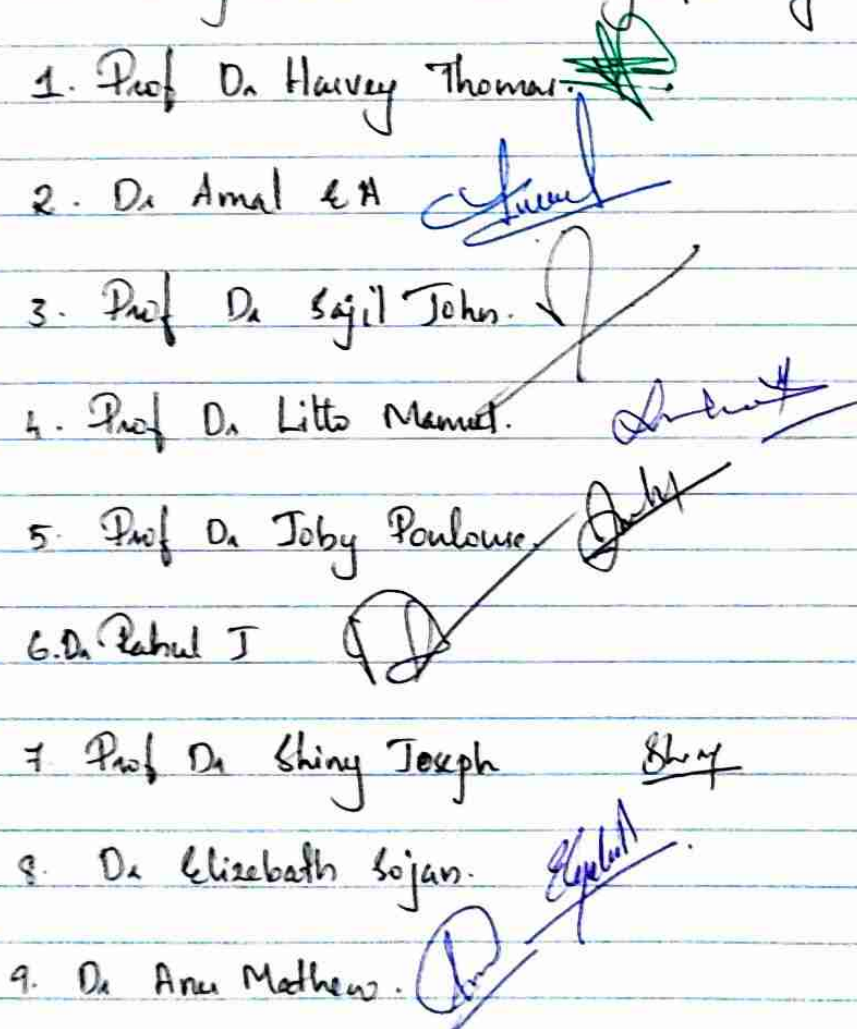 1. Prof Dr Harvey Thomas.
2. Dr Amal E A
3. Prof Dr Sajil John.
4. Prof Dr Litto Manuel.
5. Prof Dr Joby Poulouse.
6. Dr Rahul J
7 Prof Dr Shiny Joseph Shiny
8. Dr Elizebath Sojan.
9. Dr Anu Mathew.